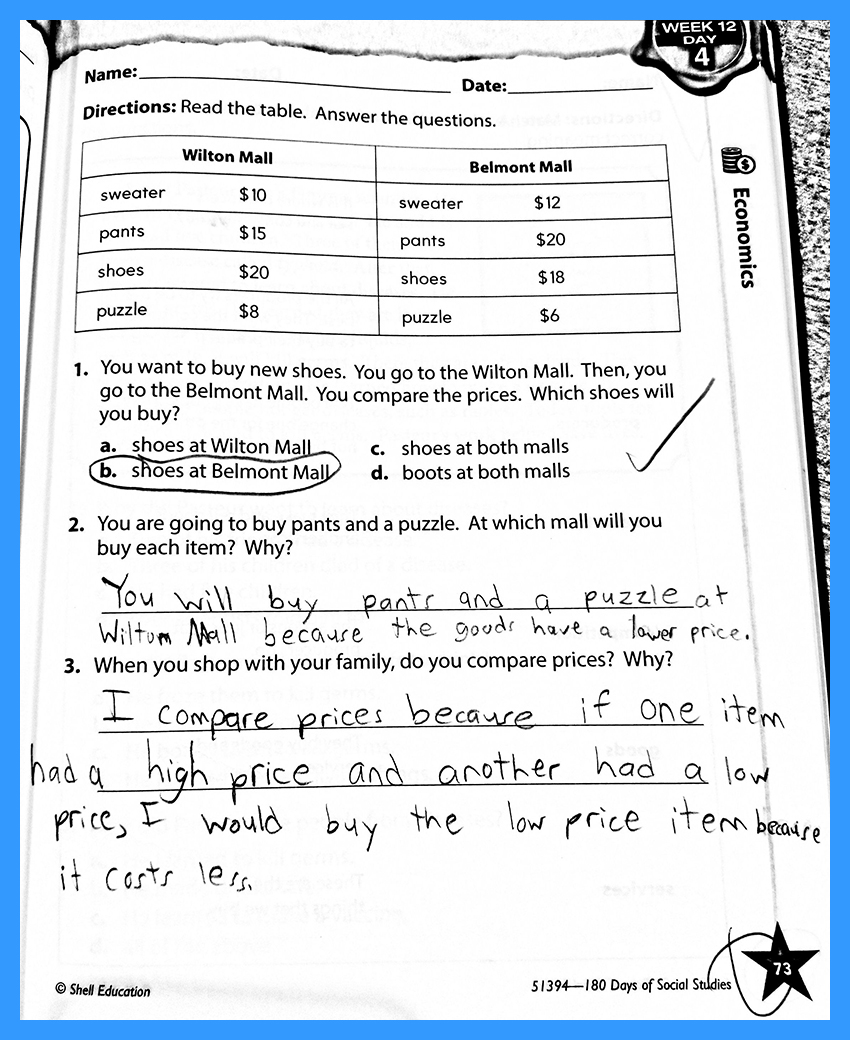 WEEK 12
DAY
4
Name: Date:
Directions: Read the table. Answer the questions.
Wilton Mall Belmont Mall
sweater $10 sweater $12
pants $15 pants $20
shoes $20 shoes $18
puzzle $8 puzzle $6
Economics
1. You want to buy new shoes. You go to the Wilton Mall. Then, you
go to the Belmont Mall. You compare the prices. Which shoes will
you buy?
a. shoes at Wilton Mall c. shoes at both malls
b. shoes at Belmont Mall d. boots at both malls
2. You are going to buy pants and a puzzle. At which mall will you
buy each item? Why?
You will buy pants and a puzzle at
Wiltom Mall because the goods have a lower price.
3. When you shop with your family, do you compare prices? Why?
I compare prices because if one item
had a high price and another had a low
price, I would buy the low price item because
it costs less.
© Shell Education 51394—180 Days of Social Studies 73